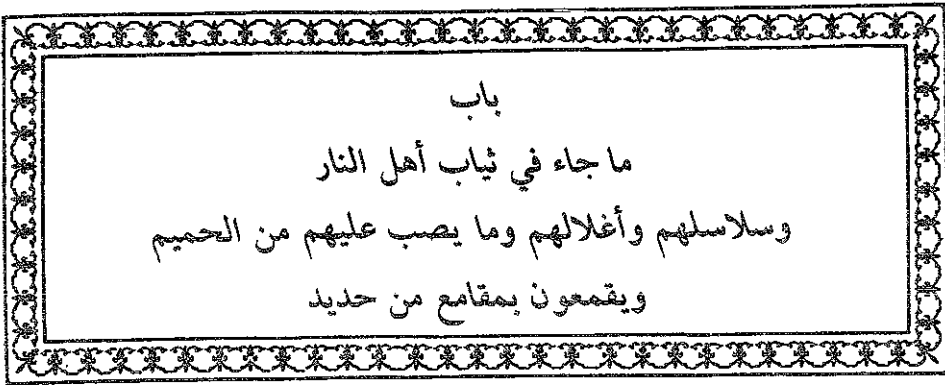 باب
ما جاء في ثياب أهل النار
وسلاسلهم وأغلالهم وما يصب عليهم من الحميم
ويقمعون بمقامع من حديد